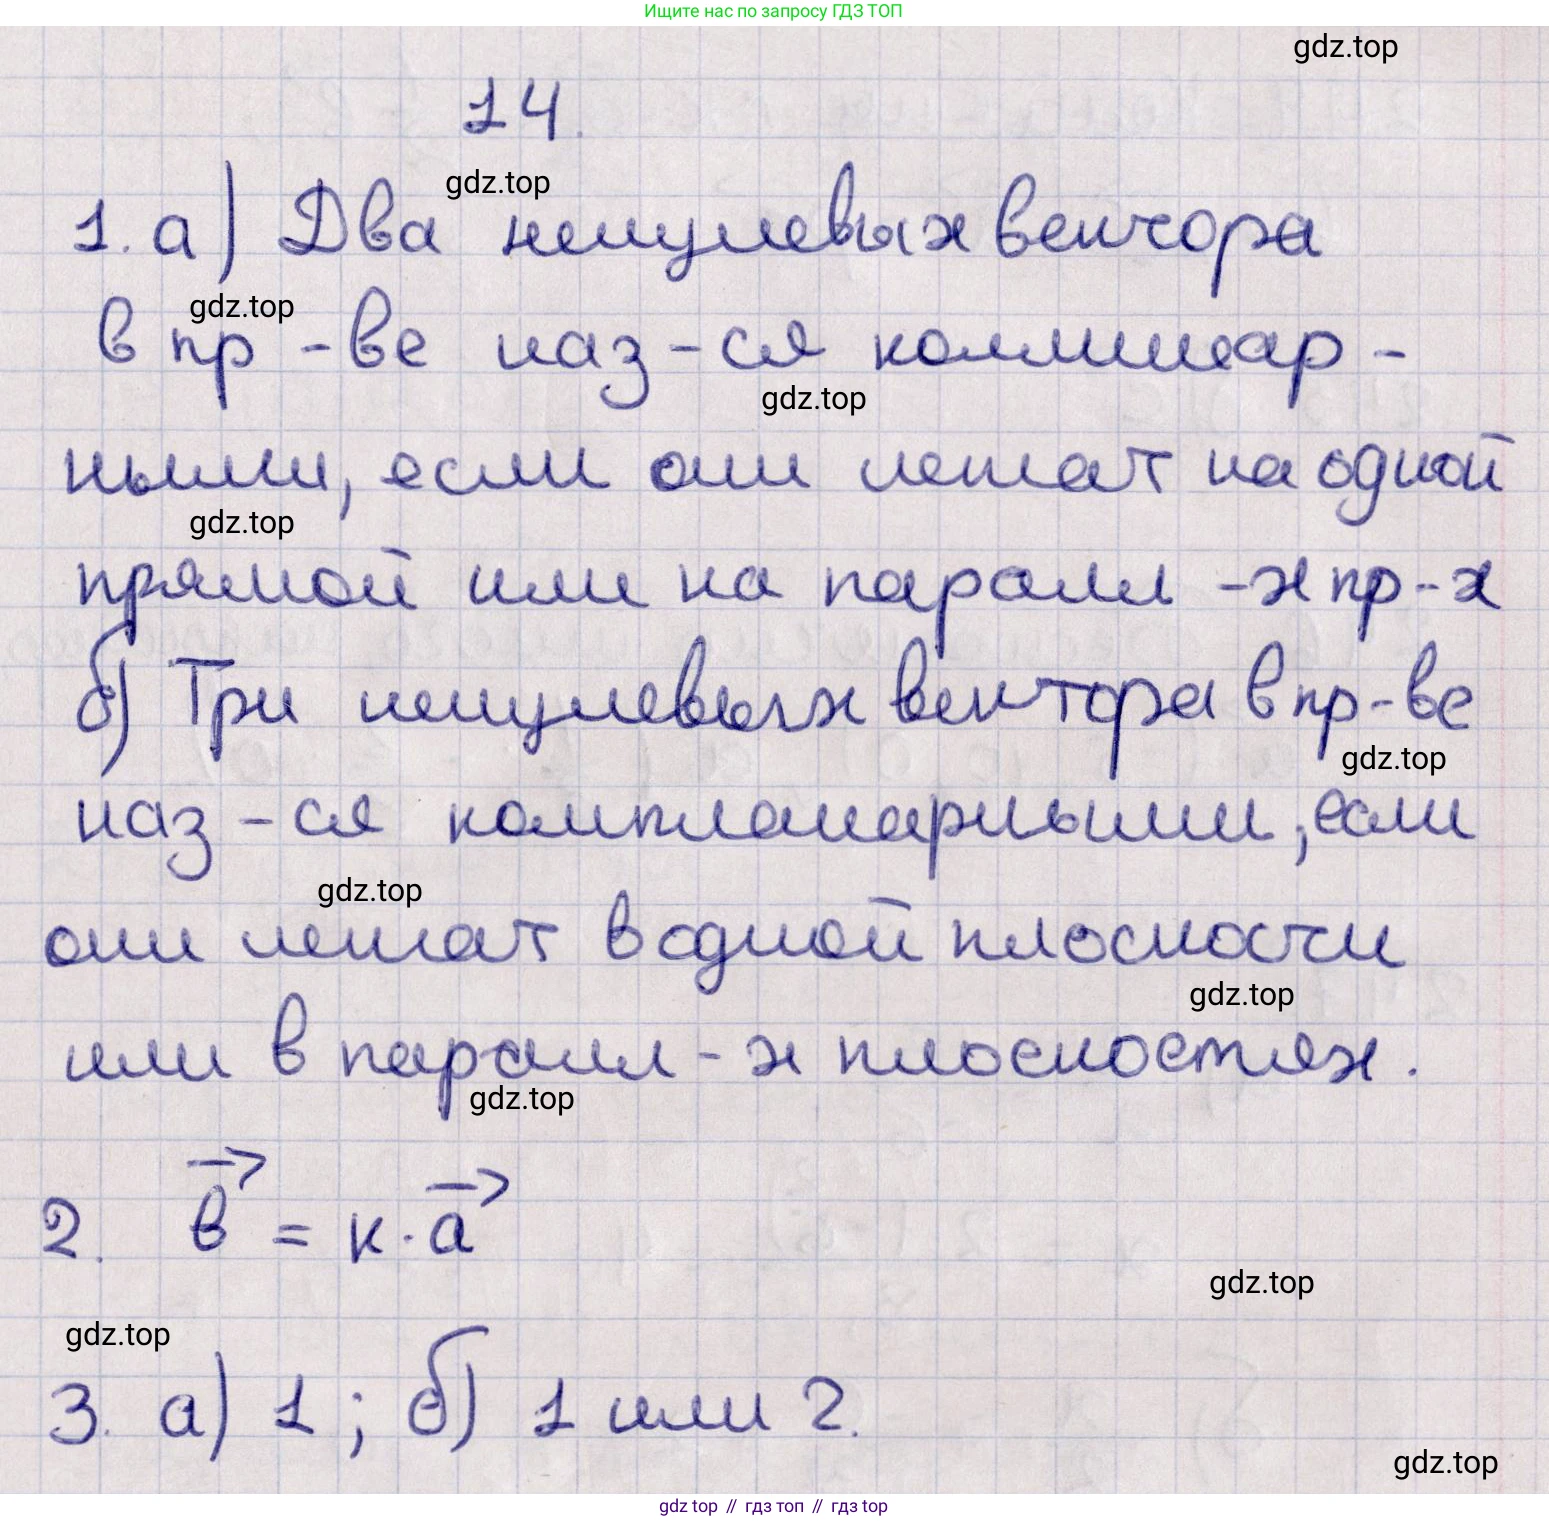 Ищите нас по запросу ГДЗ ТОП
gdz.top
14.
gdz.top
1. а) Два ненулевых вектора
gdz.top
в пр-ве наз-ся коллинеар-
gdz.top
ными, если они лежат на одной
gdz.top
прямой или на паралл-х пр-х
б) Три ненулевых вектора в пр-ве
gdz.top
наз-ся компланарными, если
gdz.top
они лежат в одной плоскости
gdz.top
или в паралл-х плоскостях.
gdz.top
2. в⃗ = к · а⃗
gdz.top
gdz.top
3. а) 1 ; б) 1 или 2.
gdz.top
gdz top // гдз топ // гдз top